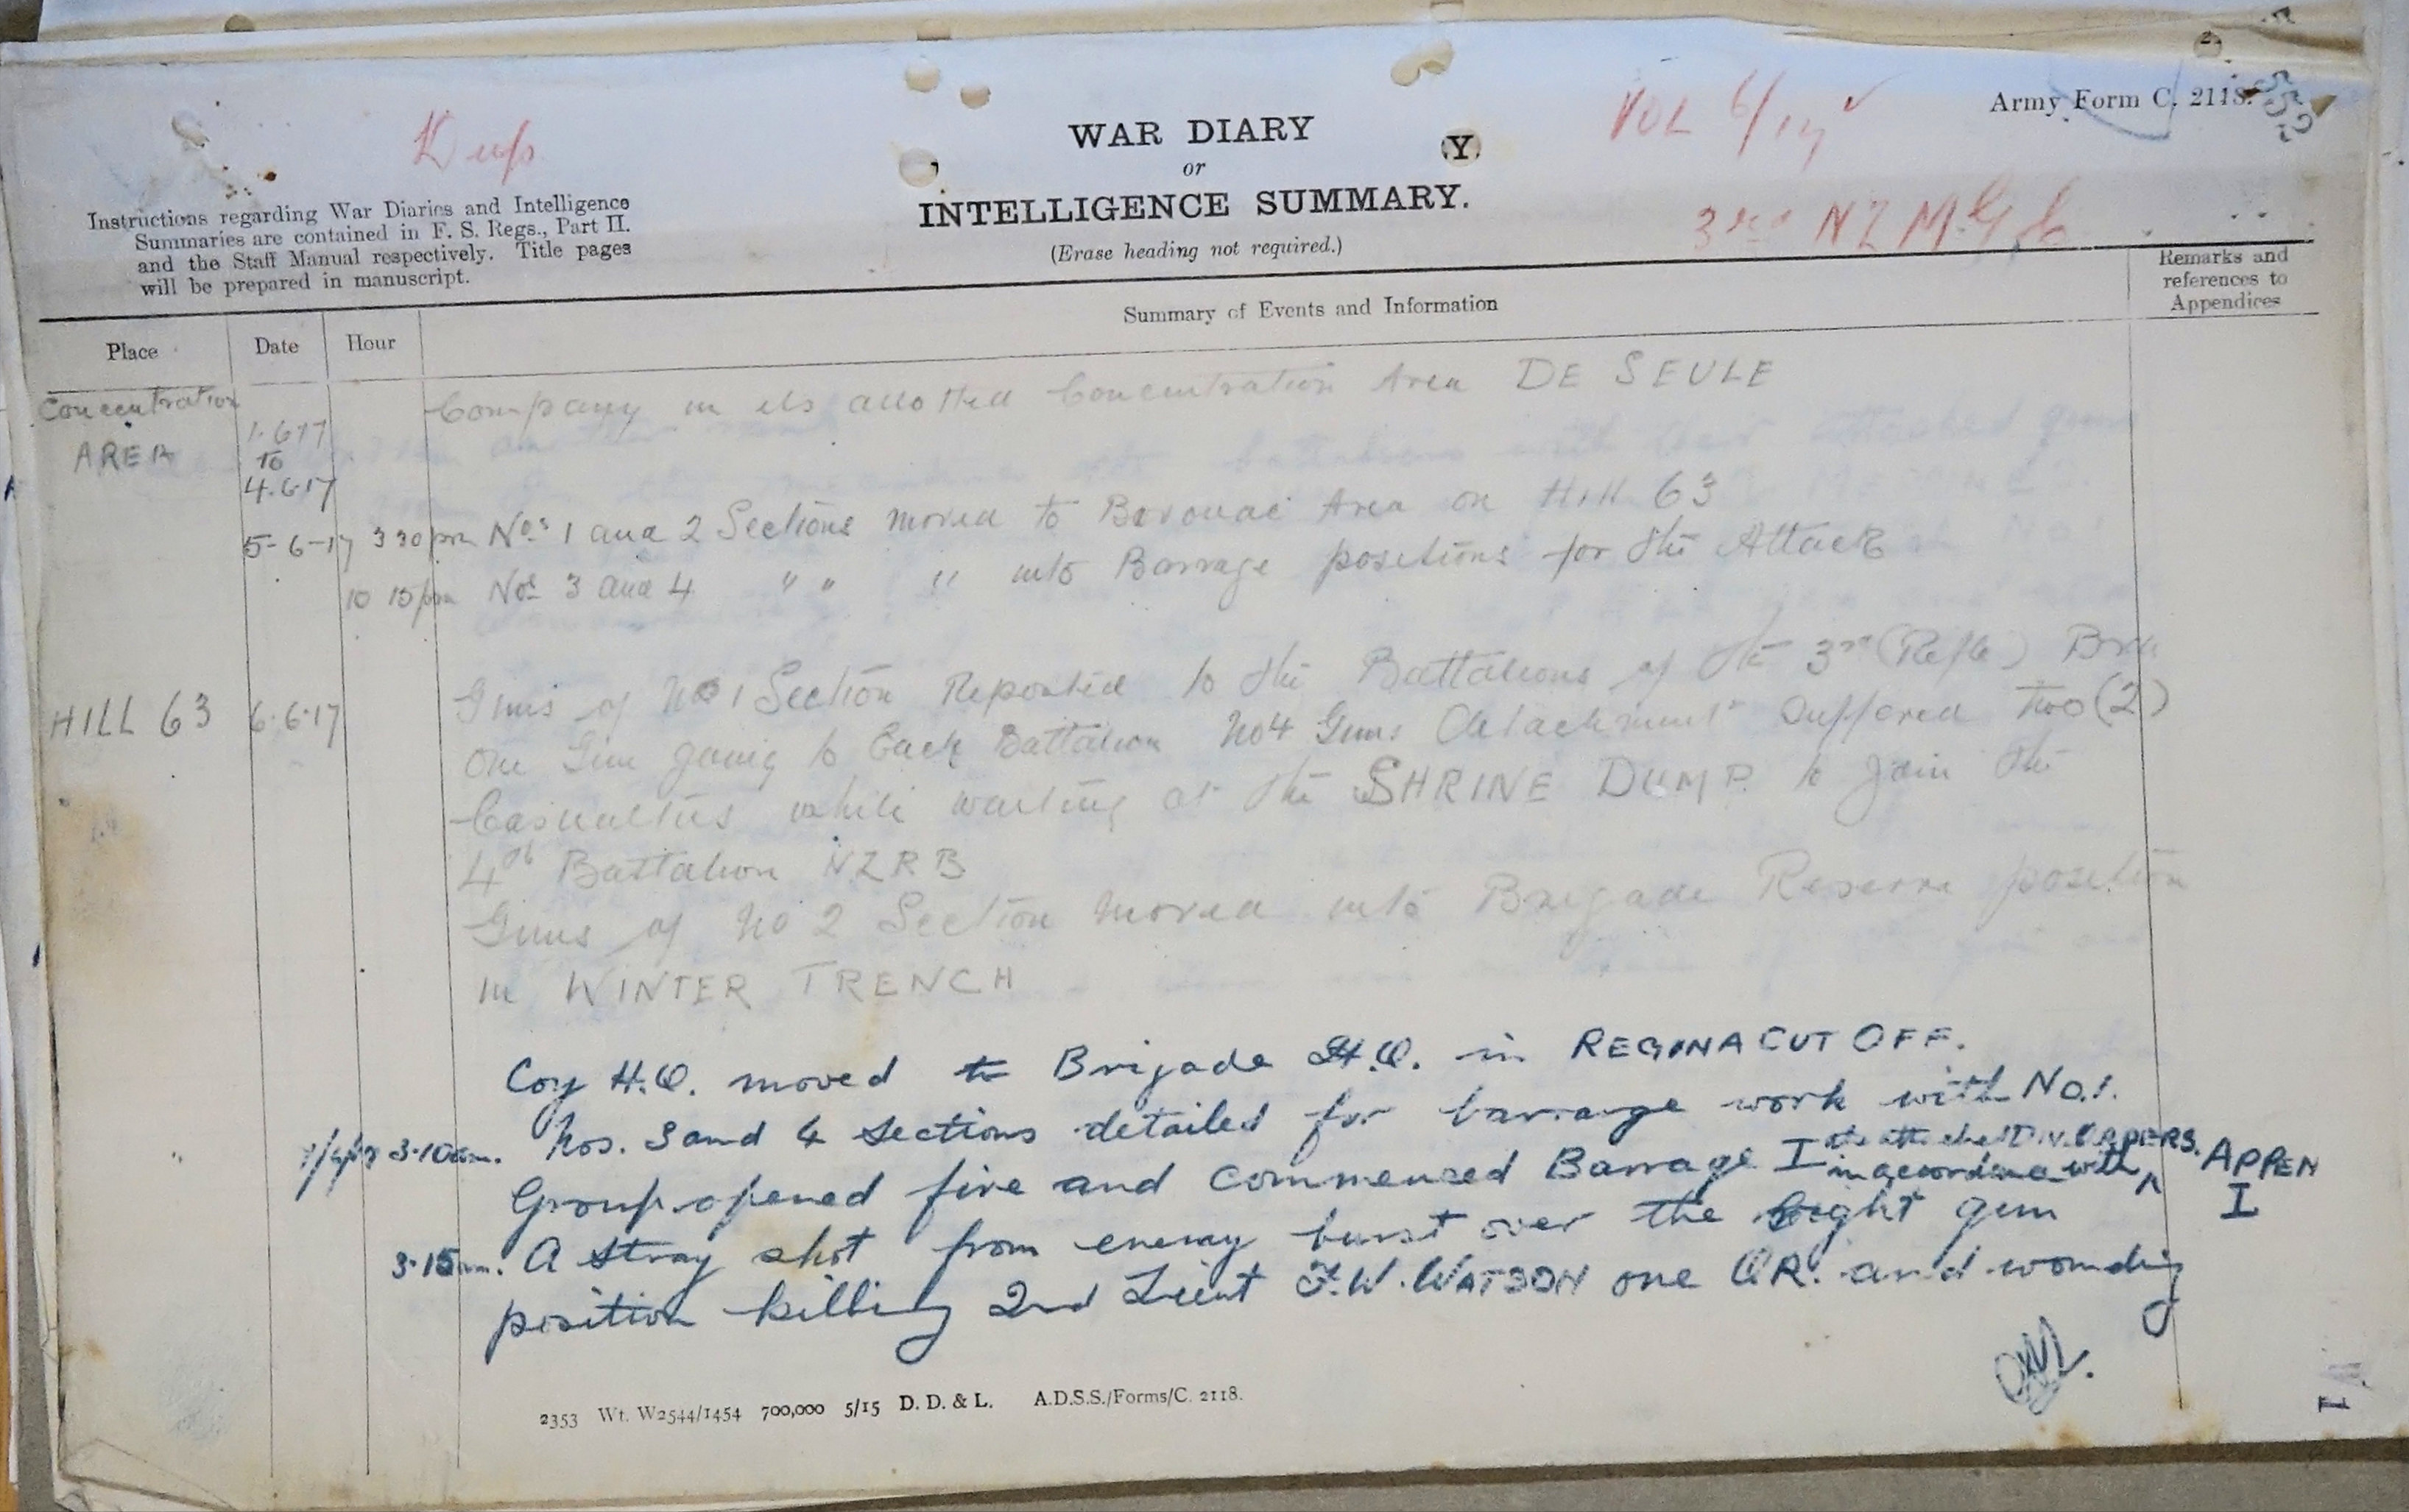 Army Form C. 2118.
552
Dup
VOL 6/17
WAR DIARY
or
INTELLIGENCE SUMMARY.
(Erase heading not required.)
3rd N Z M.G. Co
Instructions regarding War Diaries and Intelligence
Summaries are contained in F. S. Regs., Part II.
and the Staff Manual respectively. Title pages
will be prepared in manuscript.
Place Date Hour Summary of Events and Information Remarks and
references to
Appendices
Concentration
AREA
1.6.17
to
4.6.17
Company in its allotted Concentration Area DE SEULE
5-6-17 3 30 pm Nos 1 and 2 Sections moved to Bivouac Area on Hill 63
10 15 pm Nos 3 and 4 " " " into Barrage positions for the Attack
HILL 63 6.6.17 Guns of No 1 Section Reported to the Battalions of the 3rd (Rifle) Bde
One Gun going to Each Battalion No 4 Guns Detachment Suffered Two (2)
Casualties while waiting at the SHRINE DUMP. to join the
4th Battalion NZRB
Guns of No 2 Section moved into Brigade Reserve position
in WINTER TRENCH
Coy H.Q. moved to Brigade H.Q. in REGINA CUT OFF.
3.10am. Nos. 3 and 4 Sections detailed for barrage work with No.1.
Group opened fire and commenced Barrage I in accordance with attached DIV. ORDERS. APPEN
I
3.15am. A stray shot from enemy burst over the Right gun
position killing 2nd Lieut F.W. WATSON one O.R. and wounding
2353 Wt. W2544/1454 700,000 5/15 D. D. & L. A.D.S.S./Forms/C. 2118.